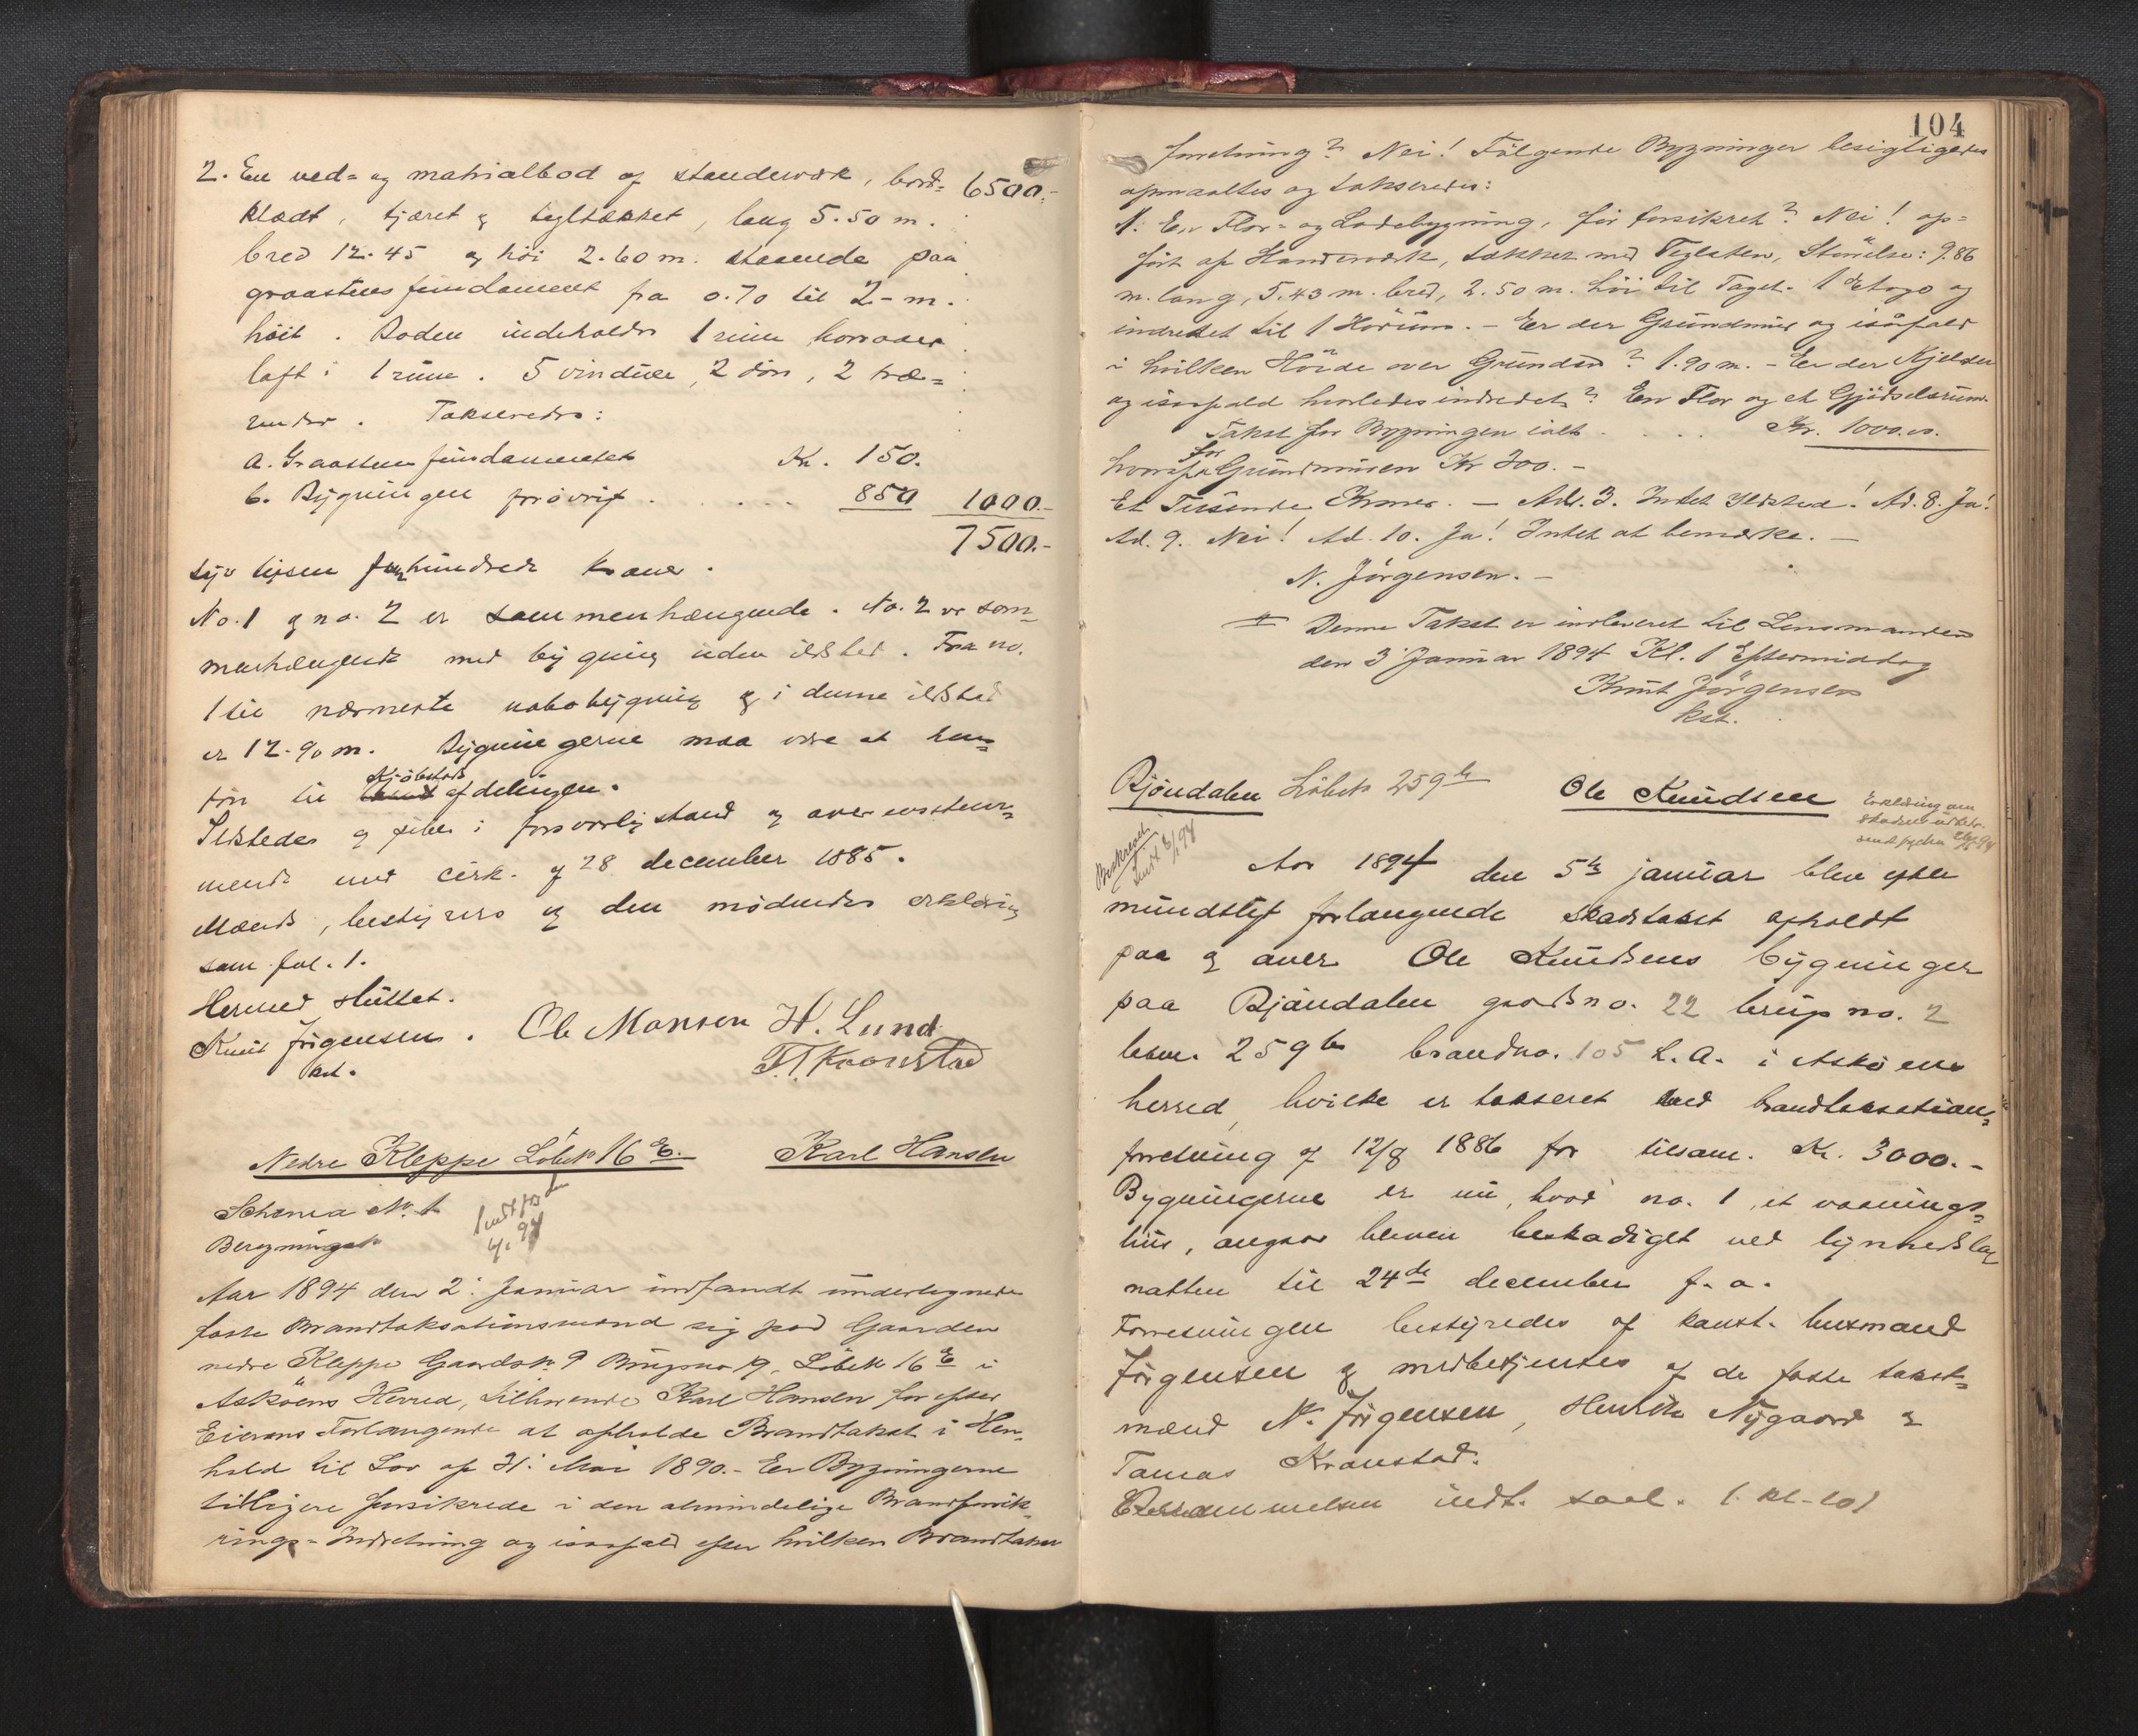 2. En ved- og matrialbod af stenderværk, bord- 6500.-
klædt, tjæret & tegltækket, lang 5.50 m.
bred 12.45 og høi 2.60 m. staaende paa
graastensfundament fra 0.70 til 2 - m.
høit. Boden indeholder 1 rum hvorover
loft i 1 rum. 5 vinduer, 2 dør, 2 træ-
Takseredes:
a. Graastensfundamentet Kr. 150.
b. Bygningen forøvrigt . . . . . 850 1000.-
7500.-
syv tusen femhundrede kroner.
No. 1 og no. 2 er sammenhængende. No. 2 er sam-
menhængende med bygning uden ildsted. Fra no.
1 til nærmeste nabobygning og i denne ildsted
er 12.90 m. Bygningerne maa være at hen-
føre til Kjøbstads afdelingen.
Ildsteder og piber i forsvarlig stand og overensstem-
mende med cirk. af 28 december 1885.
Mænds, bestyrers og den mødendes erklæring
som fol. 1.
Knut Jørgensen. Ole Monsen H. Lund
kst. T. T. Kraanstad
Nedre Kleppe Löbek 16 E. Karl Hansen
Schema No. 1
Bergningst
Aar 1894 den 2. Januar indfandt undertegnede
faste Brandtaksationsmænd sig paa Gaarden
nedre Kleppe Gaardsn. 9 Brugsno 19, Löbek 16 E i
Asköens Herred, tilhørende Karl Hansen for efter
Eierens Forlangende at afholde Brandtakst i Hen-
hold til Lov af 31. Mai 1890. - Er Bygningerne
tidligere forsikrede i den almindelige Brandforsik-
rings-Indretning og isaafald efter hvilken Brandtakst
104
forretning? Nei! Følgende Bygninger besigtigedes
opmaaltes og takseredes:
1. En Flor- og Ladebygning, før forsikret? Nei! op-
ført af Standerværk, tækket med Teglsten, Størrelse: 9.86
m. lang, 5.43 m. bred, 2.50 m. høi til Taget. 1 Etage og
indredet til 1 Hörum. - Er der Grundmur og isåfald
i hvilken Höide over Grunden? 1.90 m. - Er der Kjelder
og isaafald hvorledes indredet? En Flor og et Gjödselsrum.
Takst for Bygningen ialt . . . . . Kr. 1000.00.
hvoraf for Grundmuren Kr 300. -
Et Tusende Kroner. - Ad. 3. Intet Ildsted! Ad. 8. Ja!
Ad. 9. Nei! Ad. 10. Ja! Intet at bemærke. -
N. Jörgensen. -
Denne Takst er indleveret til Lensmanden
den 3 Januar 1894 Kl. 1 Eftermiddag
Knut Jörgensen
kst.
Bjöndalen Löbek 259 b Ole Knudsen
Erklæring om
Beskrevet
Aar 1894 den 5te januar blev efter
mundtligt forlangende skadetakst afholdt
paa og over Ole Knudsens bygninger
paa Bjöndalen gaardsno. 22 brugsno. 2
löbenr. 259 b brandno. 105 L. A. i Askøens
herred, hvilke er takseret ved brandtaksations-
forretning af 12/8 1886 for tilsam. Kr. 3000.-
Bygningerne er nu, hvad no. 1, et vaanings-
hus, angaar bleven beskadiget ved lynnedslag
natten til 24de december f. a.
Forretningen bestyredes af konst. lensmand
Jørgensen og medbetjentes af de faste takst-
mænd N. Jørgensen, Henrik Nygaard &
Tomas Kronstad.